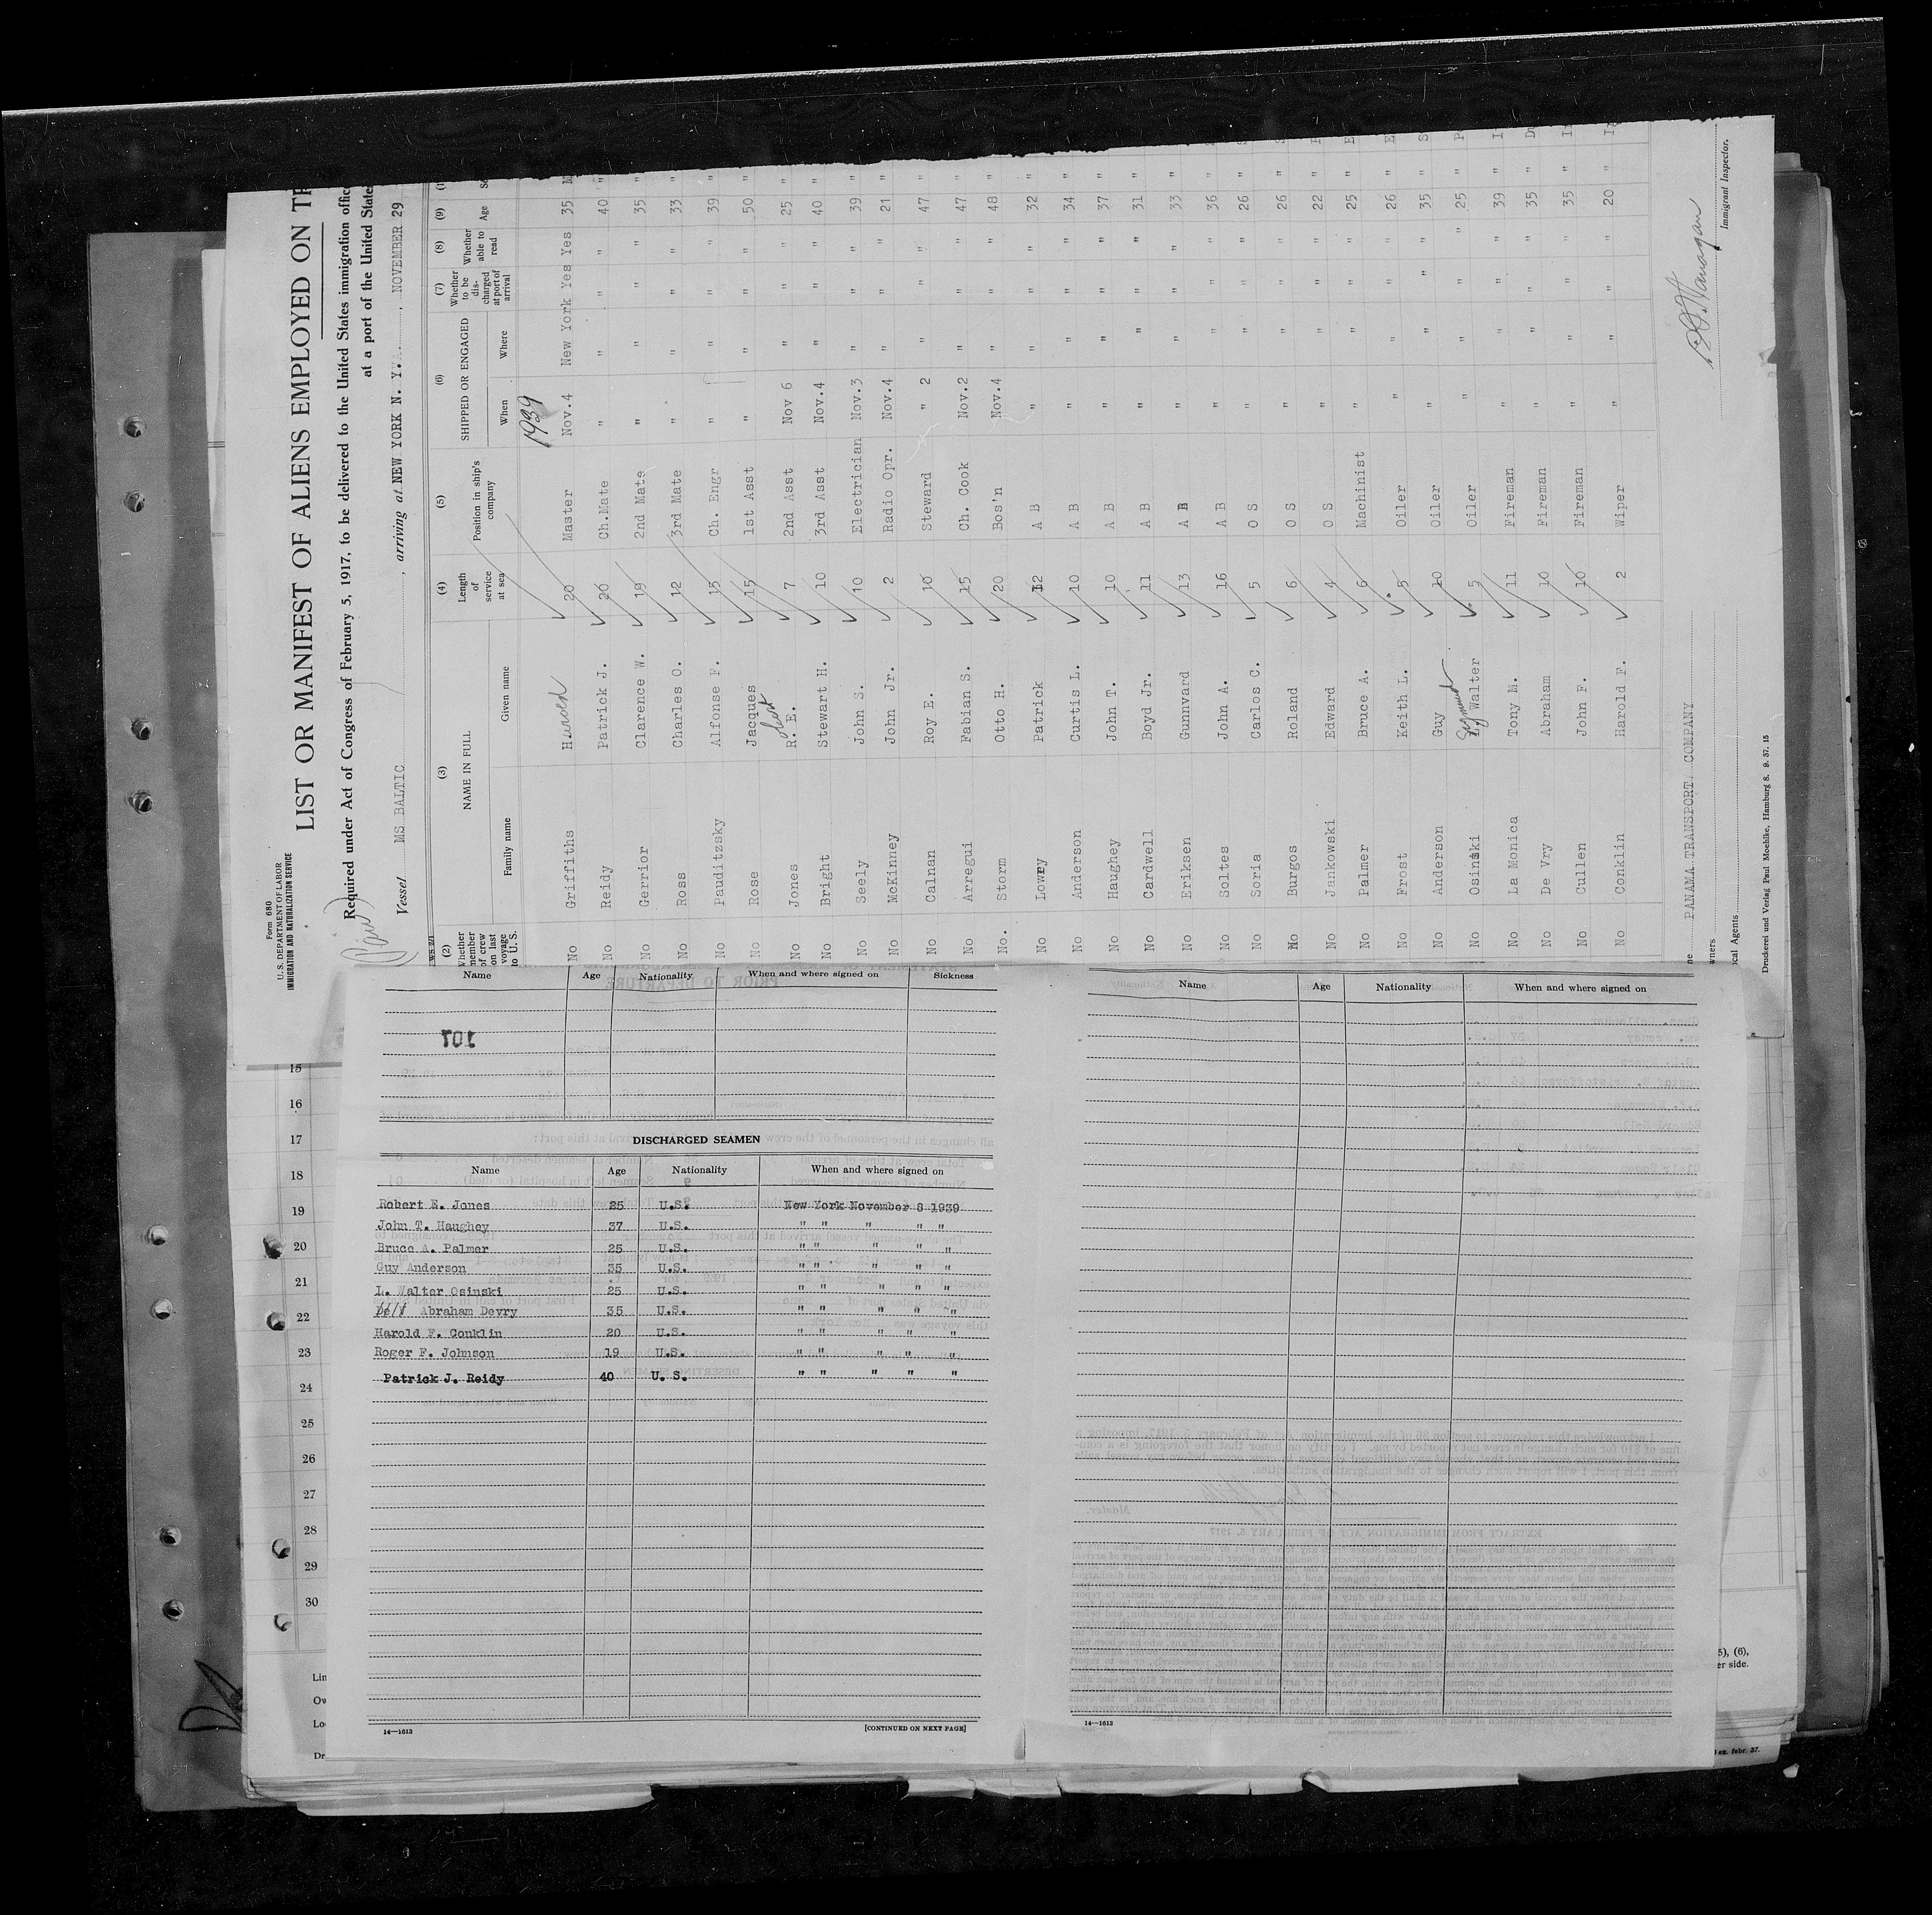 Form 680
U. S. DEPARTMENT OF LABOR
IMMIGRATION AND NATURALIZATION SERVICE
LIST OR MANIFEST OF ALIENS EMPLOYED ON
Required under Act of Congress of February 5, 1917, to be delivered to the United States immigration
at a port of the United
Vessel MS BALTIC, arriving at NEW YORK N. Y., NOVEMBER 29
(2) (3) (4) (5) (6) (7) (8) (9)
Whether member of crew on last voyage to U. S. NAME IN FULL Length of service at sea Position in ship's company SHIPPED OR ENGAGED Whether to be discharged at port of arrival Whether able to read Age
Family name Given name When Where
1939
No Griffiths Harold 20 Master Nov.4 New York Yes Yes 35
No Reidy Patrick J. 20 Ch.Mate " " " " 40 "
No Gerrior Clarence W. 19 2nd Mate " " " " 35 "
No Ross Charles O. 12 3rd Mate " " " " 33 "
No Pauditzsky Alfonse F. 15 Ch. Engr " " " " 39 "
No Rose Jacques 15 1st Asst " " " " 50 "
No Jones R. E. 7 2nd Asst Nov 6 " " " 25 "
No Bright Stewart H. 10 3rd Asst Nov.4 " " " 40 "
No Seely John S. 10 Electrician Nov.3 " " " 39 "
No McKinney John Jr. 2 Radio Opr. Nov.4 " " " 21 "
No Calnan Roy E. 10 Steward " 2 " " " 47 "
No Arregui Fabian S. 15 Ch. Cook Nov.2 " " " 47 "
No. Storm Otto H. 20 Bos'n Nov.4 " " " 48 "
No Lowry Patrick 12 A B " " " " 32 "
No Anderson Curtis L. 10 A B " " " " 34 "
No Haughey John T. 10 A B " " " " 37 "
No Cardwell Boyd Jr. 11 A B " " " " 31 "
No Eriksen Gunnvard 13 A B " " " " 33 "
No Soltes John A. 16 A B " " " " 36 "
No Soria Carlos C. 5 O S " " " " 26 "
No Burgos Roland 6 O S " " " " 26 "
No Jankowski Edward 4 O S " " " " 22 "
No Palmer Bruce A. 6 Machinist " " " " 25 "
No Frost Keith L. 5 Oiler " " " " 26 "
No Anderson Guy 10 Oiler " " " " 35 "
No Osinski Walter 5 Oiler " " " " 25 "
No La Monica Tony M. 11 Fireman " " " " 39 "
No De Vry Abraham 10 Fireman " " " " 35 "
No Cullen John F. 10 Fireman " " " " 35 "
No Conklin Harold F. 2 Wiper " " " " 20 "
PANAMA TRANSPORT. COMPANY
Immigrant Inspector.
Druckerei und Verlag Paul Moehlke, Hamburg 8. 9. 37. 15
Name Age Nationality When and where signed on Sickness
101
DISCHARGED SEAMEN
Name Age Nationality When and where signed on
Robert E. Jones 25 U.S. New York November 8 1939
John T. Haughey 37 U.S. " " " " "
Bruce A. Palmer 25 U.S. " " " " "
Guy Anderson 35 U.S. " " " " "
L. Walter Osinski 25 U.S. " " " " "
Abraham Devry 35 U.S. " " " " "
Harold F. Conklin 20 U.S. " " " " "
Roger F. Johnson 19 U.S. " " " " "
Patrick J. Reidy 40 U. S. " " " " "
14—1613 [CONTINUED ON NEXT PAGE]
Name Age Nationality When and where signed on
14—1613
15
16
17
18
19
20
21
22
23
24
25
26
27
28
29
30
Lin
Ow
Lo
Dr
5), (6),
er side.
ex. febr. 37.